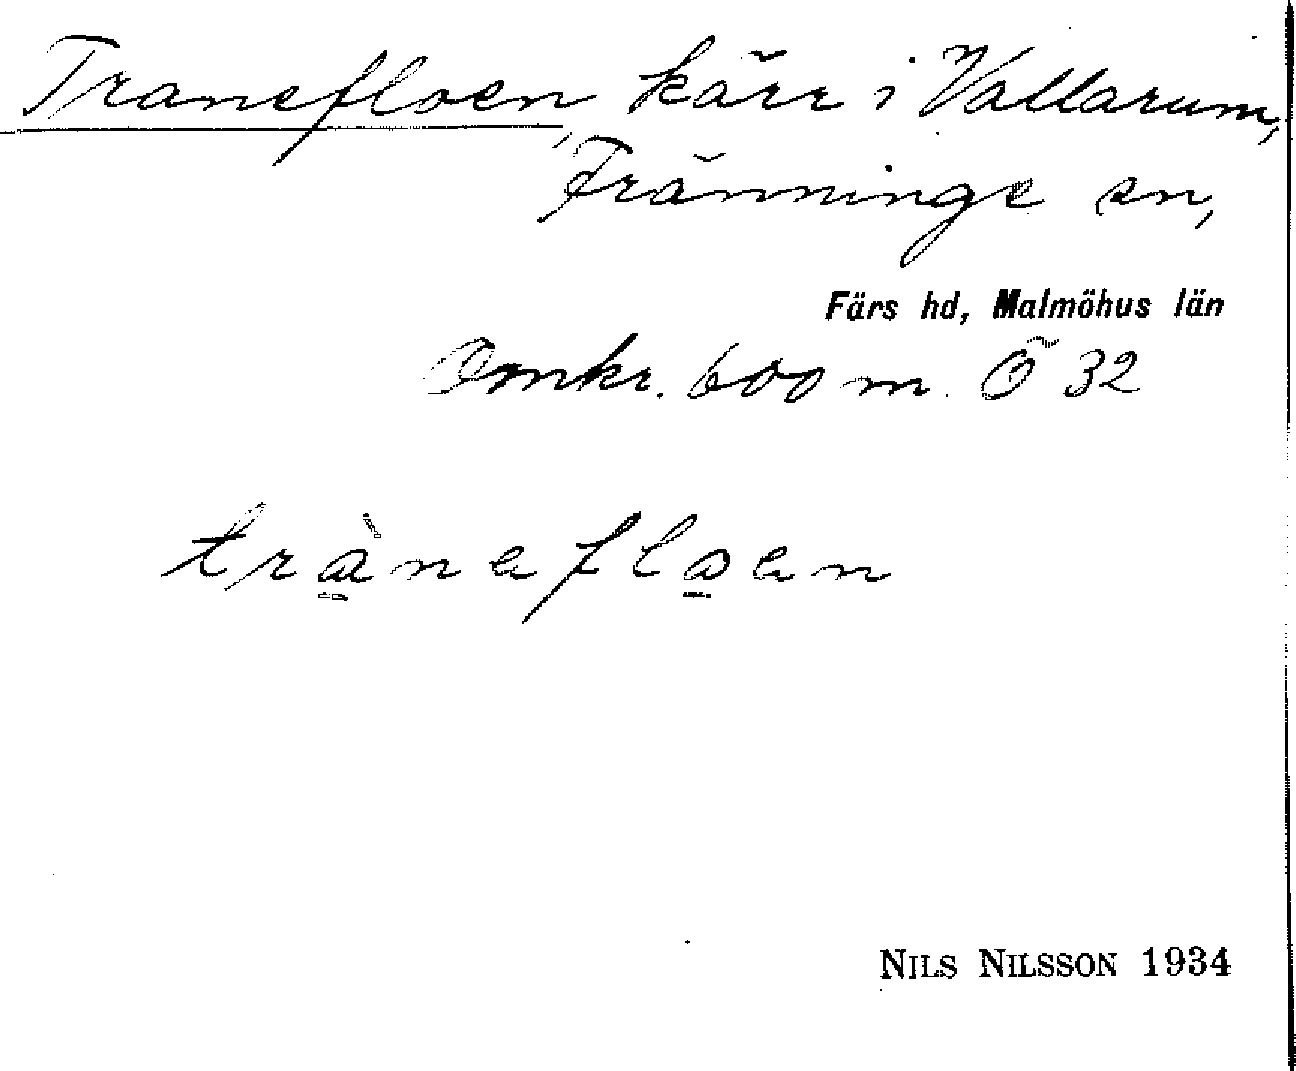 Tranefloen, kärr i Vallarum,
Fränninge sn,
Färs hd, Malmöhus län
Omkr. 600 m. Ö 32
trànefloen
NILS NILSSON 1934